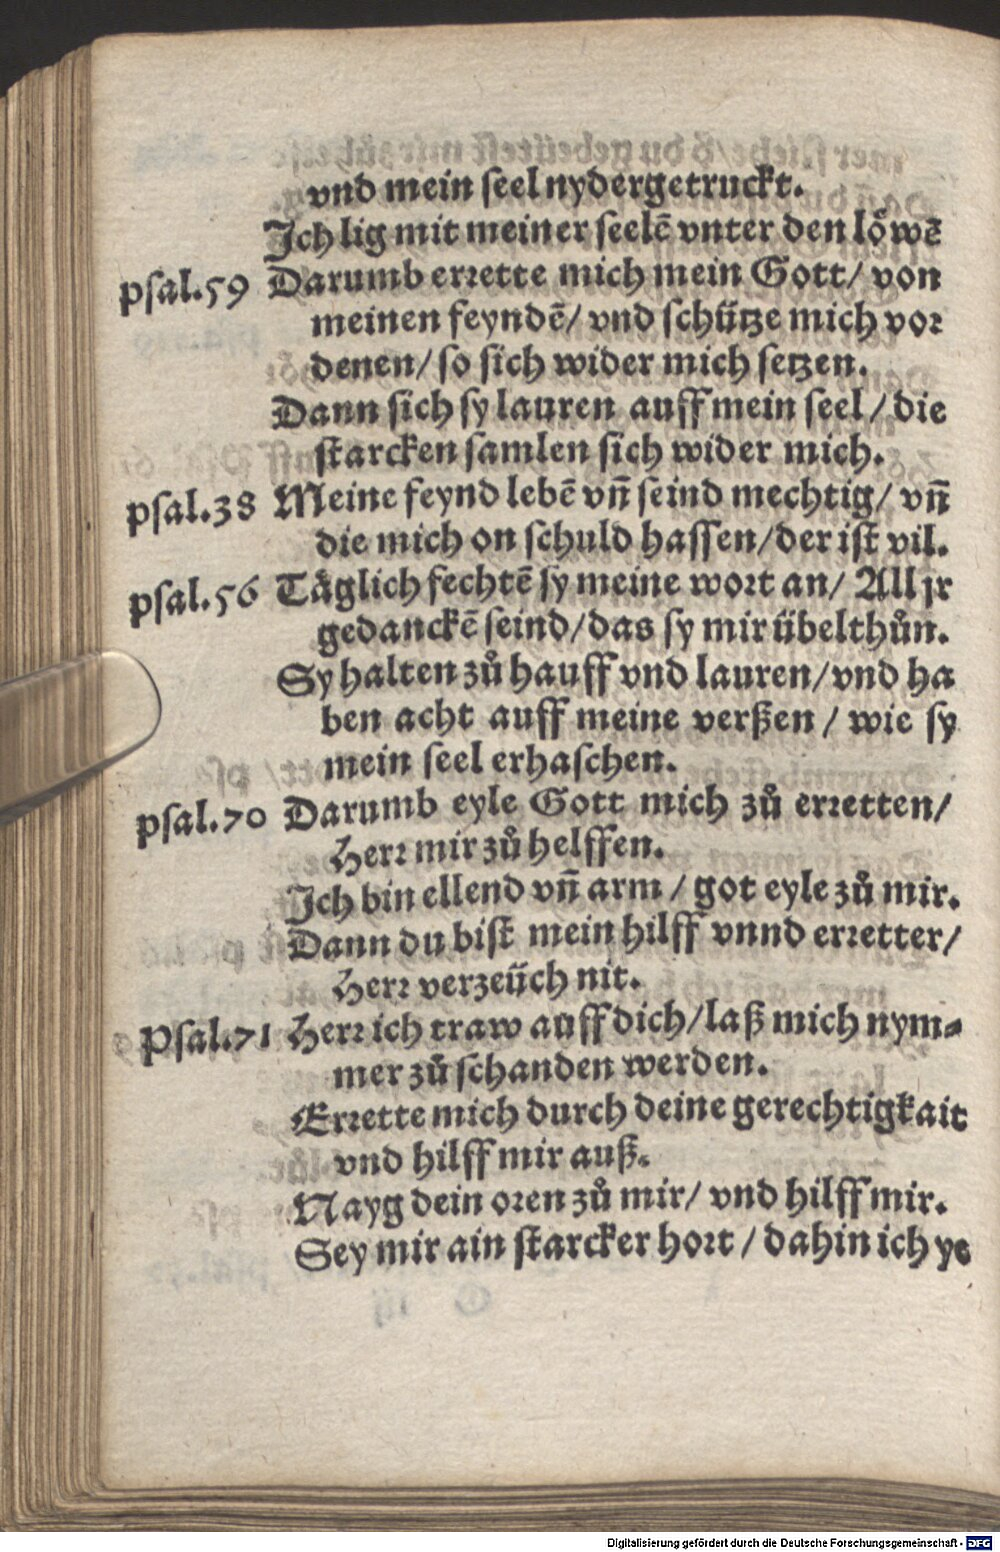 vnd mein seel nydergetruckt.
Ich lig mit meiner seelē vnter den loͤwē
psal.59 Darumb errette mich mein Gott/ von
meinen feyndē/ vnd schütze mich vor
denen/ so sich wider mich setzen.
Dann sich sy lauren auff mein seel/ die
starcken samlen sich wider mich.
psal.38 Meine feynd lebē vn̄ seind mechtig/ vn̄
die mich on schuld hassen/ der ist vil.
psal.56 Taͤglich fechtē sy meine wort an/ All jr
gedanckē seind/ das sy mir übelthuͦn.
Sy halten zuͦ hauff vnd lauren/ vnd ha
ben acht auff meine verßen/ wie sy
mein seel erhaschen.
psal.70 Darumb eyle Gott mich zuͦ erretten/
Herr mir zuͦ helffen.
Ich bin ellend vn̄ arm/ got eyle zuͦ mir.
Dann du bist mein hilff vnnd erretter/
Herr verzeüch nit.
Psal.71 Herr ich traw auff dich/ laß mich nym-
mer zuͦ schanden werden.
Errette mich durch deine gerechtigkait
vnd hilff mir auß.
Nayg dein oren zuͦ mir/ vnd hilff mir.
Sey mir ain starcker hort/ dahin ich ye
Digitalisierung gefördert durch die Deutsche Forschungsgemeinschaft - DFG